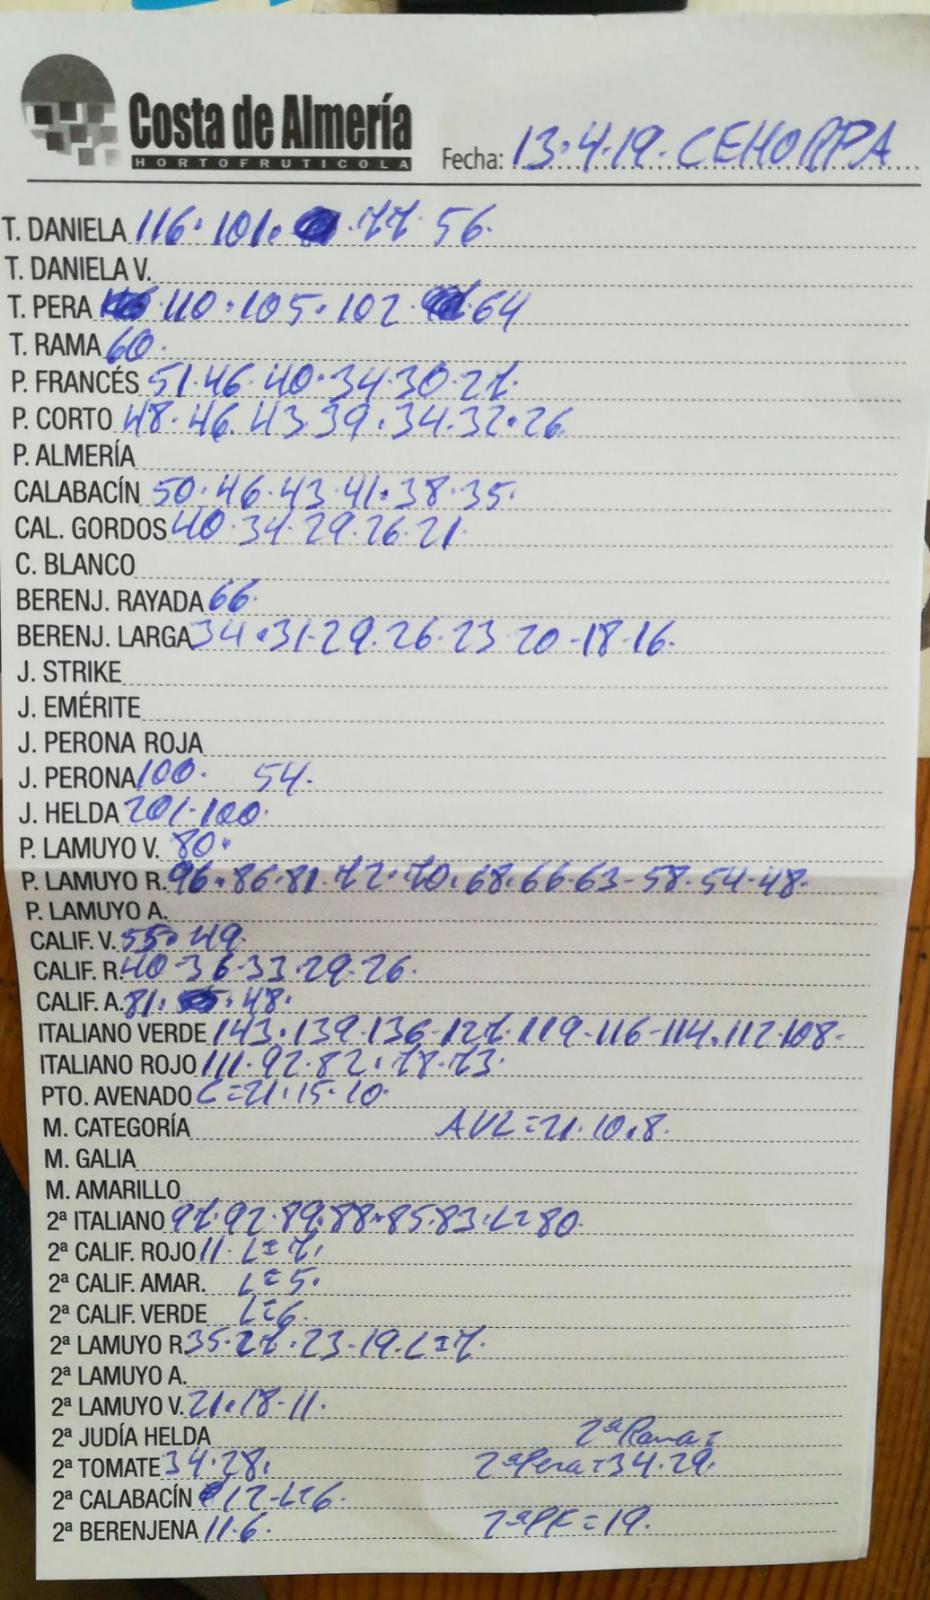 Costa de Almería
HORTOFRUTICOLA
Fecha: 13.4.19. CEHORPA
T. DANIELA 116. 101. 77. 56.
T. DANIELA V.
T. PERA 110. 105. 102. 64
T. RAMA 60.
P. FRANCÉS 51. 46. 40. 34. 30. 27.
P. CORTO 48. 46. 43. 39. 34. 32. 26.
P. ALMERÍA
CALABACÍN 50. 46. 43. 41. 38. 35.
CAL. GORDOS 40. 34. 29. 26. 21.
C. BLANCO
BERENJ. RAYADA 66.
BERENJ. LARGA 34. 31-29. 26-23 20-18-16.
J. STRIKE
J. EMÉRITE
J. PERONA ROJA
J. PERONA 100. 54.
J. HELDA 201-100.
P. LAMUYO V. 80.
P. LAMUYO R. 96. 86. 81. 72. 70. 68. 66. 63-58. 54-48-
P. LAMUYO A.
CALIF. V. 55. 49.
CALIF. R. 40-36-33. 29. 26.
CALIF. A. 81. 48.
ITALIANO VERDE 143. 139. 136-127. 119-116-114. 112-108-
ITALIANO ROJO 111. 92. 82. 78-73.
PTO. AVENADO C=21. 15. 10.
M. CATEGORÍA AVL=21. 10. 8.
M. GALIA
M. AMARILLO
2ª ITALIANO 97. 92. 89. 88. 85. 83. L=80.
2ª CALIF. ROJO 11. L=7.
2ª CALIF. AMAR. L=5.
2ª CALIF. VERDE L=6.
2ª LAMUYO R. 35-27. 23-19. L=7.
2ª LAMUYO A.
2ª LAMUYO V. 21. 18-11.
2ª JUDÍA HELDA 2ª Rama=
2ª TOMATE 34. 28. 2ª Pera=34. 29.
2ª CALABACÍN 12-L=6.
2ª BERENJENA 11. 6. 2ª PF=19.